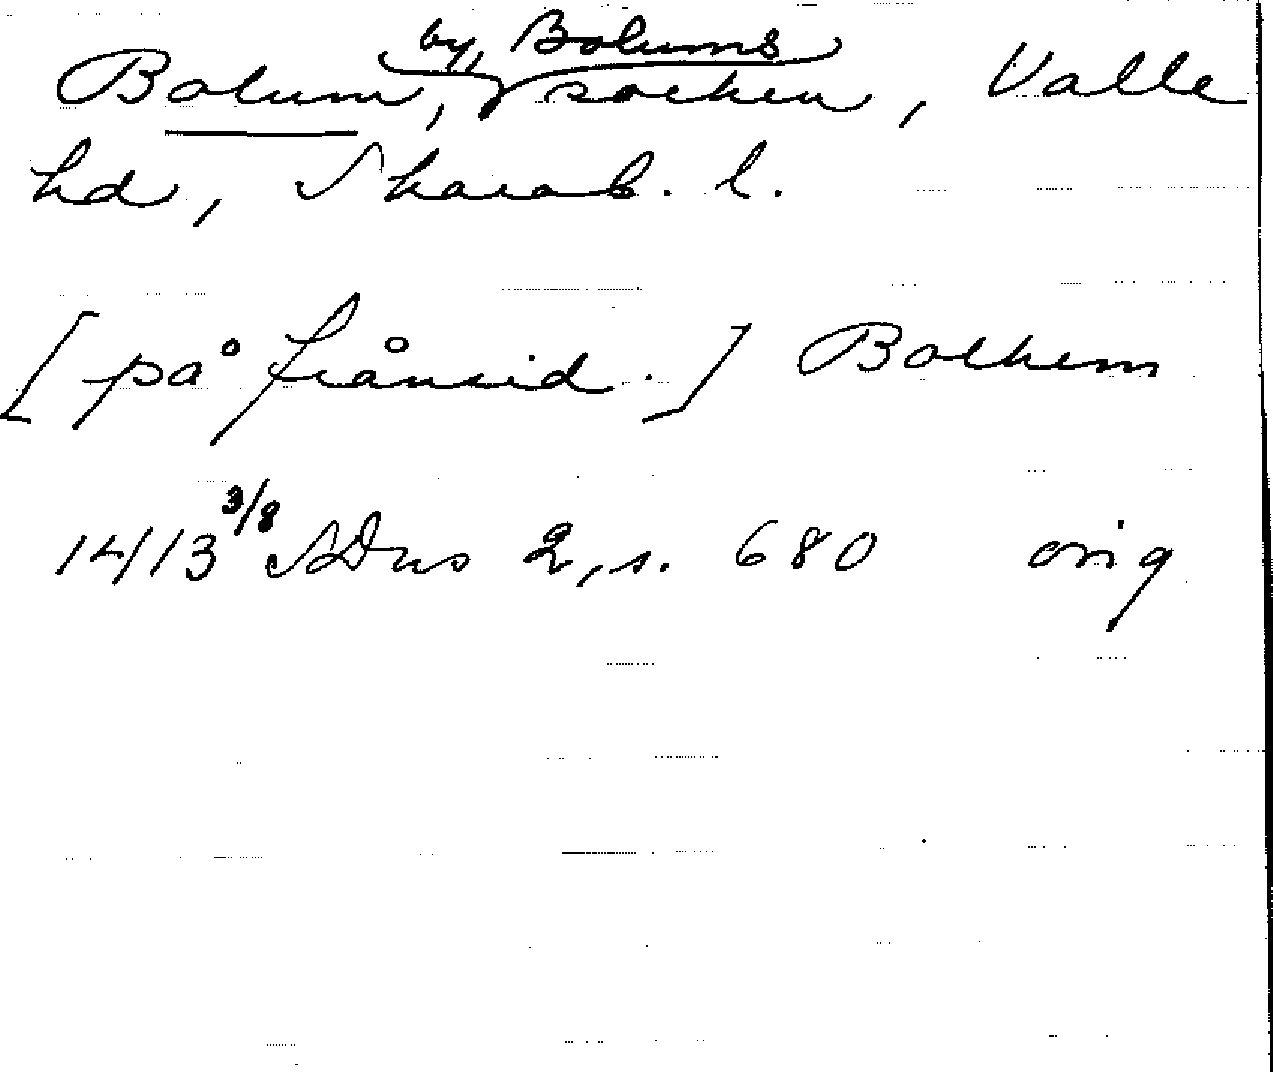 Bolum, by, Bolums socken, Valle
hd, Skarab. l.
[på frånsid.] Bolhem
1413 3/8 SDns 2, s. 680 orig